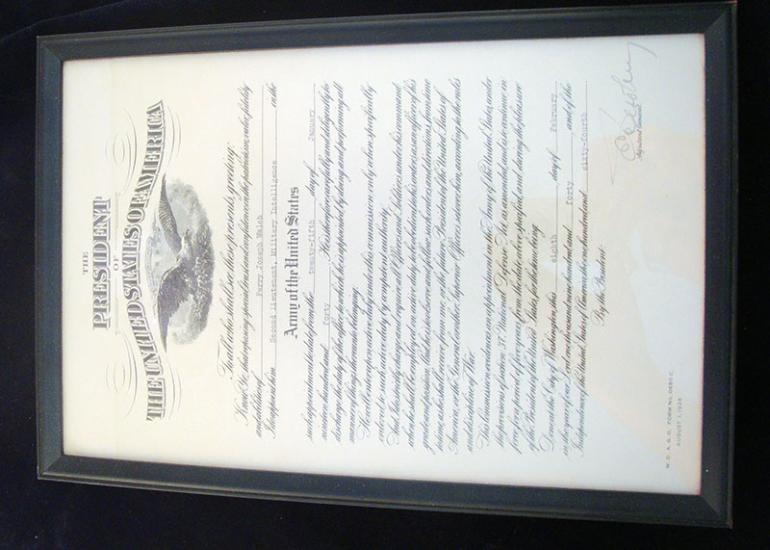 THE
PRESIDENT
OF
THE UNITED STATES OF AMERICA
To all who shall see these presents, greeting:
Know Ye, that reposing special trust and confidence in the patriotism, valor, fidelity
and abilities of Perry Joseph Welsh
I do appoint him Second Lieutenant, Military Intelligence in the
Army of the United States
such appointment to date from the twenty-fifth day of January
nineteen hundred and forty He is therefore carefully and diligently to
discharge the duty of the office to which he is appointed by doing and performing all
manner of things thereunto belonging.
He will enter upon active duty under this commission only when specifically
ordered to such active duty by competent authority.
And I do strictly charge and require all Officers and Soldiers under his command
when he shall be employed on active duty to be obedient to his orders as an officer of his
grade and position. And he is to observe and follow such orders and directions, from time
to time, as he shall receive from me, or the future President of the United States of
America, or the General or other Superior Officers set over him, according to the rules
and discipline of War.
This Commission evidences an appointment in the Army of the United States, under
the provisions of section 37, National Defense Act, as amended, and is to continue in
force for a period of five years from the date above specified, and during the pleasure
of the President of the United States, for the time being.
Done at the City of Washington, this eighth day of February
in the year of our Lord one thousand nine hundred and forty and of the
Independence of the United States of America the one hundred and sixty-fourth
By the President:
Adjutant General.
W. D., A. G. O. FORM No. 0650 C.
AUGUST 1, 1928